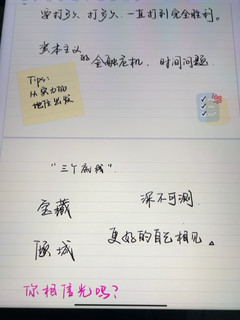 要打多久,打多久,一直打到完全胜利。
资本主义的金融危机,时间问题
Tips:
从实力的
地位出发
"三个底线"
宝藏 深不可测
倾城 更好的自己相见。
你相信光吗?